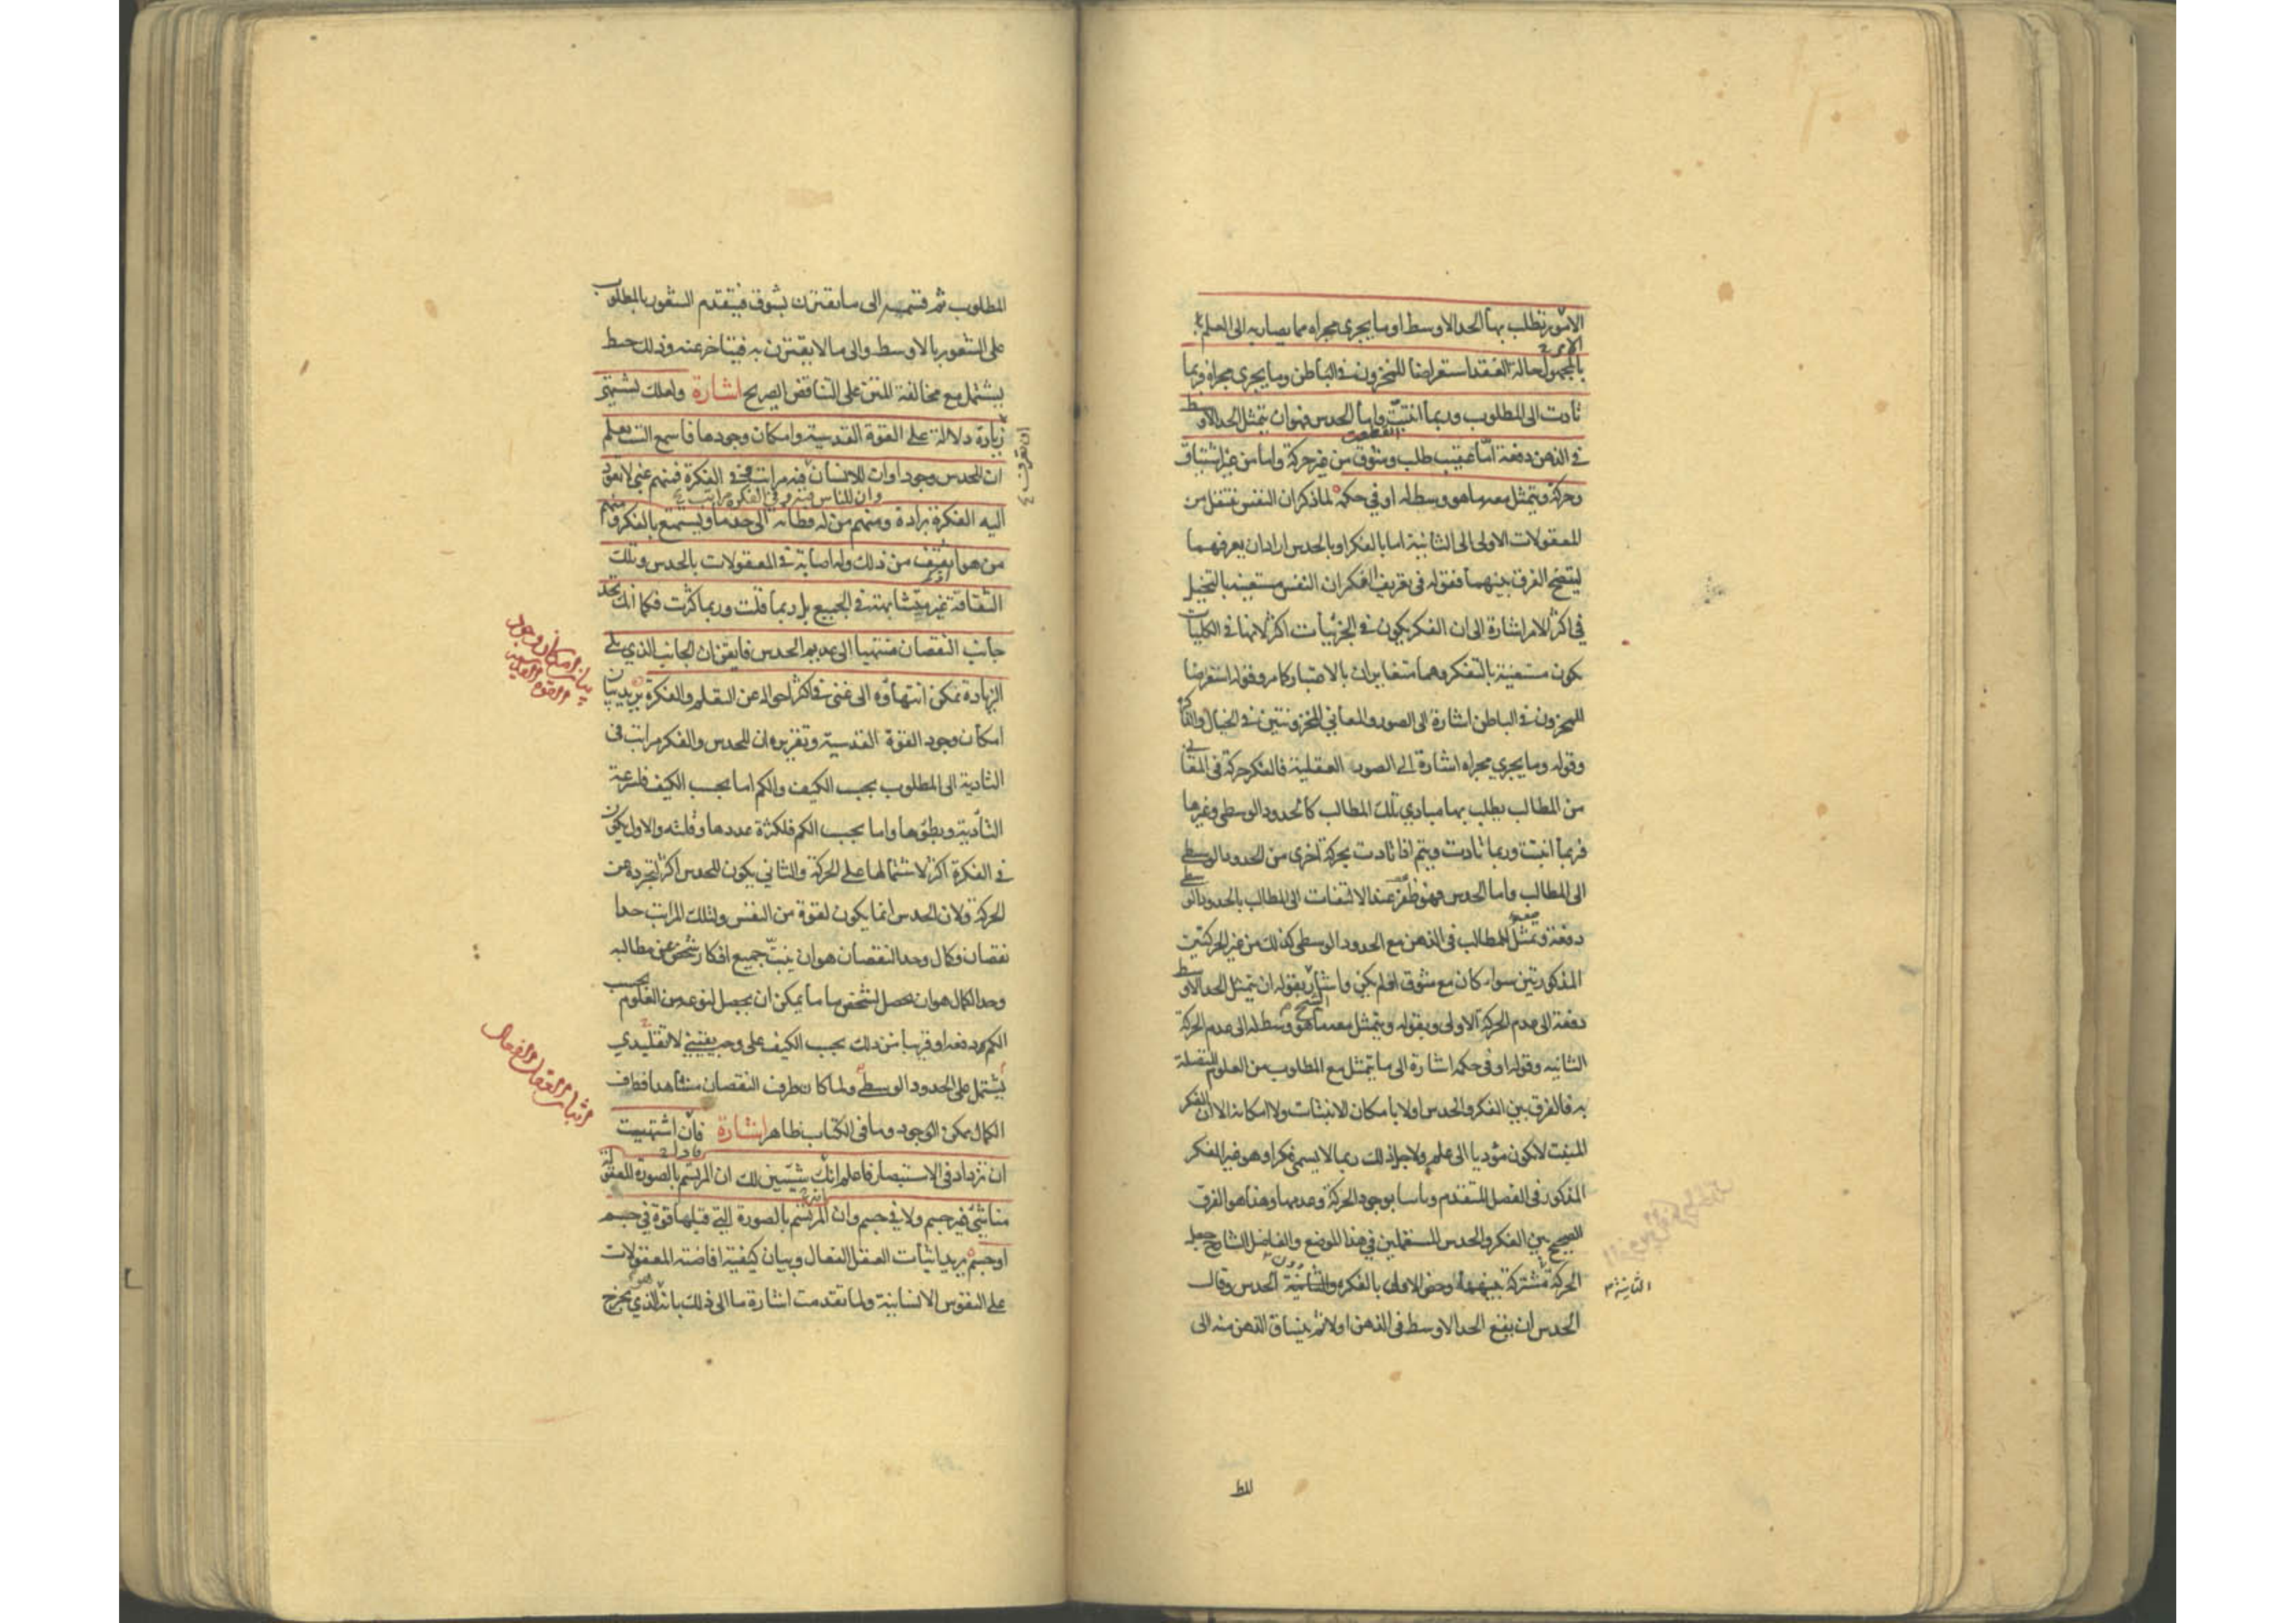 الامور يطلب بها الحد الاوسط او ما يجرى مجراه مما يصار به الى العلم
بالمجهول حالة الفقد استعراضا للمخزون فى الباطن وما يجرى مجراه فربما
تادت الى المطلوب وربما انبتت واما الحدس فهو ان يتمثل الحد الاوسط
فى الذهن دفعة اما عقيب طلب وشوق من غير حركة واما من غير اشتياق
وحركة ويتمثل معه ما هو وسط له او فى حكمه لما ذكر ان النفس تنتقل من
المعقولات الاولى الى الثانية اما بالفكر او بالحدس اراد ان يعرفهما
ليتضح الفرق بينهما فقوله فى تعريف الفكر ان النفس مستعينة بالتخيل
فى اكثر الامر اشارة الى ان الفكر يكون فى الجزئيات اكثر لانها فى الكليات
يكون مستعينة بالتفكر وهما متغايران بالاعتبار كما مر وقوله استعراضا
للمخزون فى الباطن اشارة الى الصور والمعانى المخزونتين فى الخيال والذاكرة
وقوله وما يجرى مجراه اشارة الى الصور العقلية فالفكر حركة فى المعانى
من المطالب يطلب بها مبادى تلك المطالب كالحدود الوسطى وغيرها
فربما انبتت وربما تادت ويتم اذا تادت بحركة اخرى من الحدود الوسطى
الى المطالب واما الحدس فهو ظفر عند الالتفات الى المطالب بالحدود الوسطى
دفعة وتمثل المطالب فى الذهن مع الحدود الوسطى كذلك من غير الحركتين
المذكورتين سواء كان مع شوق او لم يكن واشار الشيخ بقوله ان يتمثل الحد الاوسط
دفعة الى عدم الحركة الاولى وبقوله ويتمثل معه ما هو وسط له الى عدم الحركة
الثانية وقوله او فى حكمه اشارة الى ما يتمثل مع المطلوب من العلوم المتصلة
به فالفرق بين الفكر والحدس اولا بامكان الانبتات ولا امكانه الا ان الفكر
المنبت لا يكون مؤديا الى علم ولاجل ذلك ربما لا يسمى فكرا وهو غير الفكر
المذكور فى الفصل المتقدم وثانيا بوجود الحركة وعدمها وهذا هو الفرق
الصحيح بين الفكر والحدس المستعملين فى هذا الموضع والفاضل الشارح جعل
الحركة مشتركة بينهما وخص الاولى بالفكر دون الحدس وقال
الثانية
الحدس ان يقع الحد الاوسط فى الذهن اولا ثم ينساق الذهن منه الى
المط
المطلوب ثم قسمه الى ما يقترن بشوق فيتقدم الشعور بالمطلوب
على الشعور بالاوسط والى ما لا يقترن به فيتاخر عنه وذلك خبط
يشتمل مع مخالفة المتن على التناقض الصريح اشارة ولعلك تشتهى
زيادة دلالة على القوة القدسية وامكان وجودها فاسمع الست تعلم
ان للحدس وجودا وان للانسان فيه مراتب وفى الفكرة فمنهم غبى لا يعود
وان للناس فيه وفى الفكرة مراتب
اليه الفكرة برادة ومنهم من له فطانة الى حد ما ويستمتع بالفكر ومنهم
من هو اثقف من ذلك وله اصابة فى المعقولات بالحدس وتلك
الثقافة غير متشابهة فى الجميع بل ربما قلت وربما كثرت فكما انك تجد
جانب النقصان منتهيا الى عديم الحدس فايقن ان الجانب الذى يلى
الزيادة يمكن انتهاؤه الى غنى فى اكثر احواله عن التعلم والفكرة يريد بيان
بيان امكان وجود
القوة القدسية
امكان وجود القوة القدسية وتقريره ان للحدس والفكر مراتب فى
التادية الى المطلوب بحسب الكيف والكم اما بحسب الكيف فلسرعة
التأدية وبطؤها واما بحسب الكم فلكثرة عددها وقلته والاول يكون
فى الفكرة اكثر لاشتمالها على الحركة والثانى يكون للحدس اكثر لتجرده عن
الحركة ولان الحدس انما يكون لقوة من النفس ولتلك المراتب حدا
نقصان وكمال وحد النقصان هو ان ينبت جميع افكار شخص عن مطالبه
وحد الكمال هو ان يحصل لشخص ما ما يمكن ان يحصل لنوعه من العلوم بحسب
الكم دفعة او قريبا من ذلك بحسب الكيف على وجه يقينى لا تقليدى
اثبات العقل الفعال
يشتمل على الحدود الوسطى ولما كان طرف النقصان مشاهدا فطرف
الكمال ممكن الوجود وما فى الكتاب ظاهر اشارة فان اشتهيت
ان تزداد فى الاستبصار فاعلم انك سيتبين لك ان المرتسم بالصورة المعقولة
منا شئ غير جسم ولا فى جسم وان المرتسم بالصورة التى قبلها قوة فى جسم
او جسم يريد اثبات العقل الفعال وبيان كيفية افاضته المعقولات
على النفوس الانسانية ولما تقدمت اشارة ما الى ذلك بانه الذى يخرج